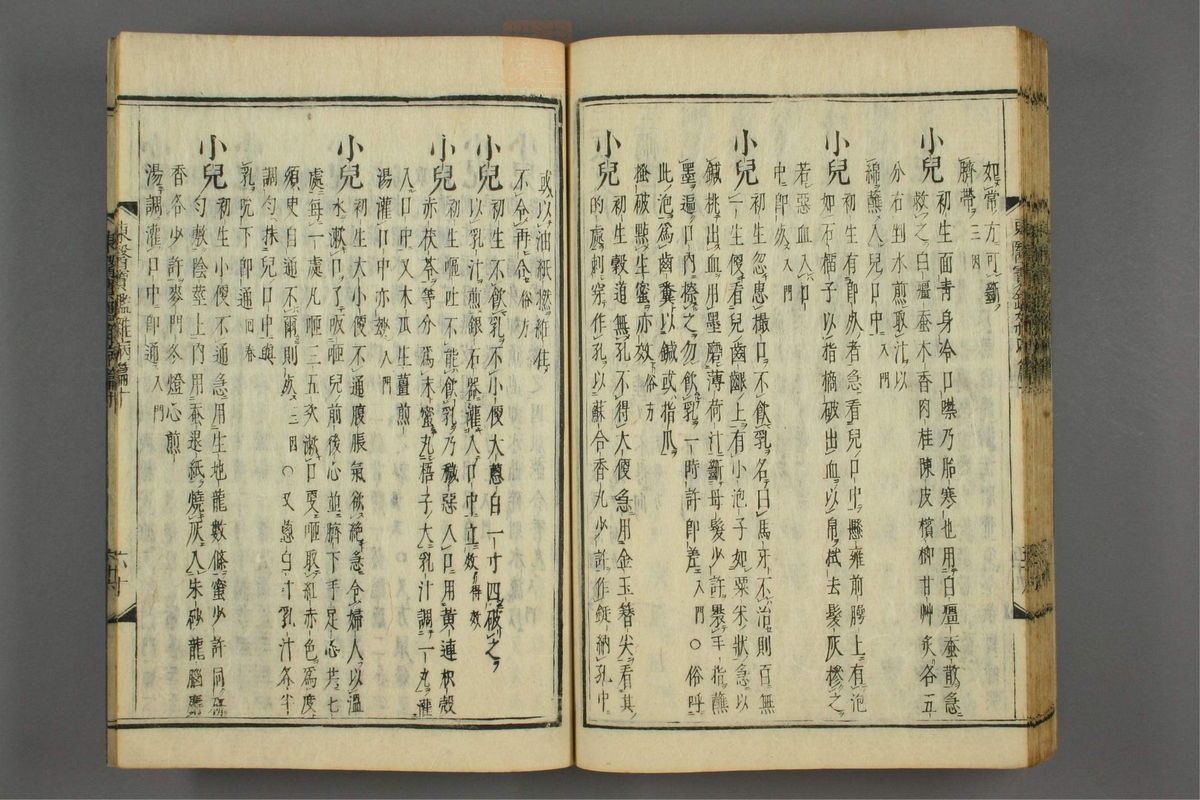 如常方可斷
臍帶三因
小兒初生面靑身冷口噤乃胎寒也用白殭蚕散急
救之白殭蚕木香肉桂陳皮檳榔甘艸炙各五
分右剉水煎取汁以
綿蘸入兒口中入門
小兒初生有即死者急看兒口中懸雍前腭上有泡
如石榴子以指摘破出血以帛拭去髮灰糝之
若惡血入口
中即死入門
小兒初生忽患撮口不飮乳名曰馬牙不治則百無
一生便看兒齒齦上有小泡子如粟米狀急以
鍼挑出血用墨磨薄荷汁斷母髮少許裹手指蘸
墨遍口內擦之勿飮乳一時許即差入門○俗呼
此泡爲齒糞以鍼或指爪
搔破點生蜜亦效俗方
小兒初生穀道無孔不得大便急用金玉簪尖看其
的處刺穿作孔以蘇合香丸少許作錠納孔中
或以油紙撚紝住
不令再合俗方
小兒初生不飮乳不小便大蔥白一寸四破之
以乳汁煎銀石器灌入口中立效得效
小兒初生咂吐不能飮乳乃穢惡入口用黃連枳殼
赤茯苓等分爲末蜜丸梧子大乳汁調一丸灌
入口中又木瓜生薑煎
湯灌口中亦效入門
小兒初生大小便不通腹脹氣欲絶急令婦人以溫
水漱口了吸咂兒前後心並臍下手足心共七
處每一處凡咂三五次漱口要咂取紅赤色爲度
須臾自通不爾則死三因○又蔥白汁乳汁各半
調勻抹兒口中與
乳吮下即通回春
小兒初生小便不通急用生地龍數條蜜少許同硏
勻敷陰莖上內用蚕退紙燒灰入朱砂龍腦麝
香各少許麥門冬燈心煎
湯調灌口中即通入門
東醫寶鑑雜病篇十